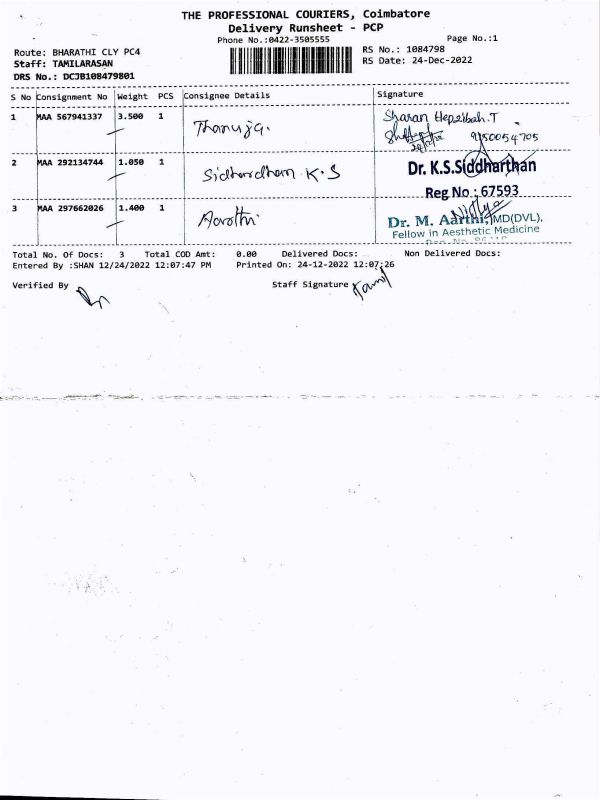 THE PROFESSIONAL COURIERS, Coimbatore
Delivery Runsheet - PCP
Phone No.:0422-3505555
Page No.:1
Route: BHARATHI CLY PC4
RS No.: 1084798
Staff: TAMILARASAN
RS Date: 24-Dec-2022
DRS No.: DCJB108479801
S No Consignment No Weight PCS Consignee Details Signature
1 MAA 567941337 3.500 1 Thanuja. Sharan Hepzibah.T
9150054705
2 MAA 292134744 1.050 1 Sidhardhan K.S Dr. K.S.Siddharthan
Reg No : 67593
3 MAA 297662026 1.400 1 Aarathi Dr. M. Aarthi, MD(DVL),
Fellow in Aesthetic Medicine
Total No. Of Docs: 3 Total COD Amt: 0.00 Delivered Docs: Non Delivered Docs:
Entered By :SHAN 12/24/2022 12:07:47 PM Printed On: 24-12-2022 12:07:26
Verified By Staff Signature Tamil